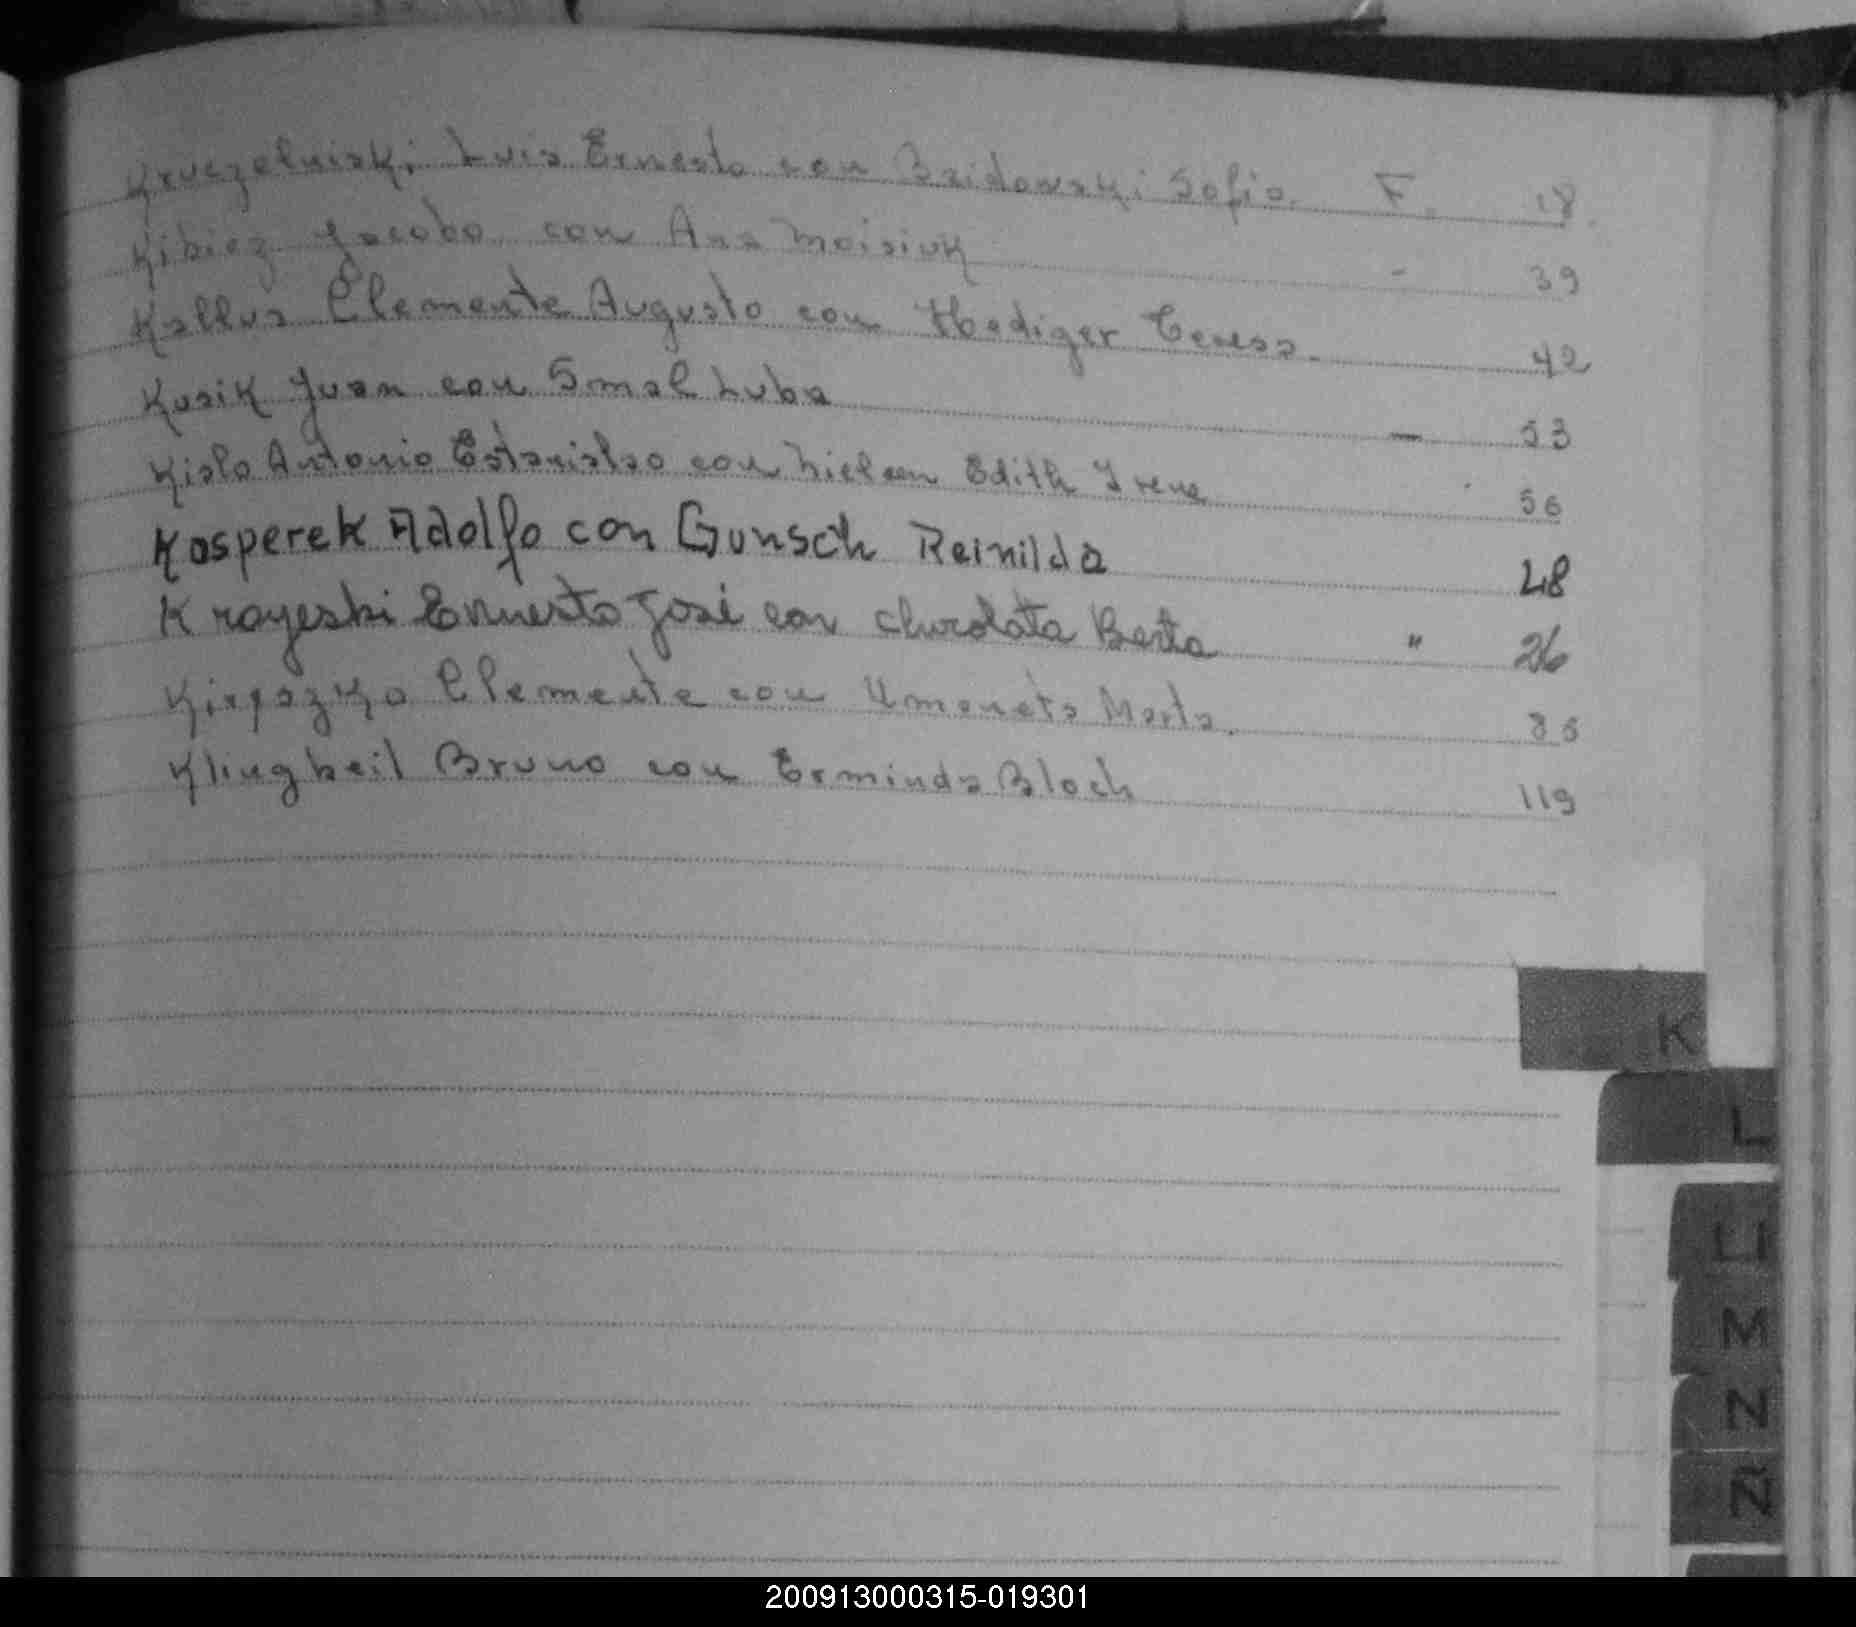 Kruczelniski Luis Ernesto con Bzidowski Sofia. F. 18.
Kibiez Jacobo con Ana Moisiuk - 39
Kallus Clemente Augusto con Hediger Teresa. 42
Kusik Juan con Smal Luba — 53
Kislo Antonio Estanislao con Nielsen Edith Irene 56
Kasperek Adolfo con Gunsch Reinilda 28
Krayeski Ernesto José con Berta " 26
Clemente con Marta. 
Klingbeil Bruno con Erminda Bloch 119
K
L
LL
M
N
Ñ
200913000315-019301